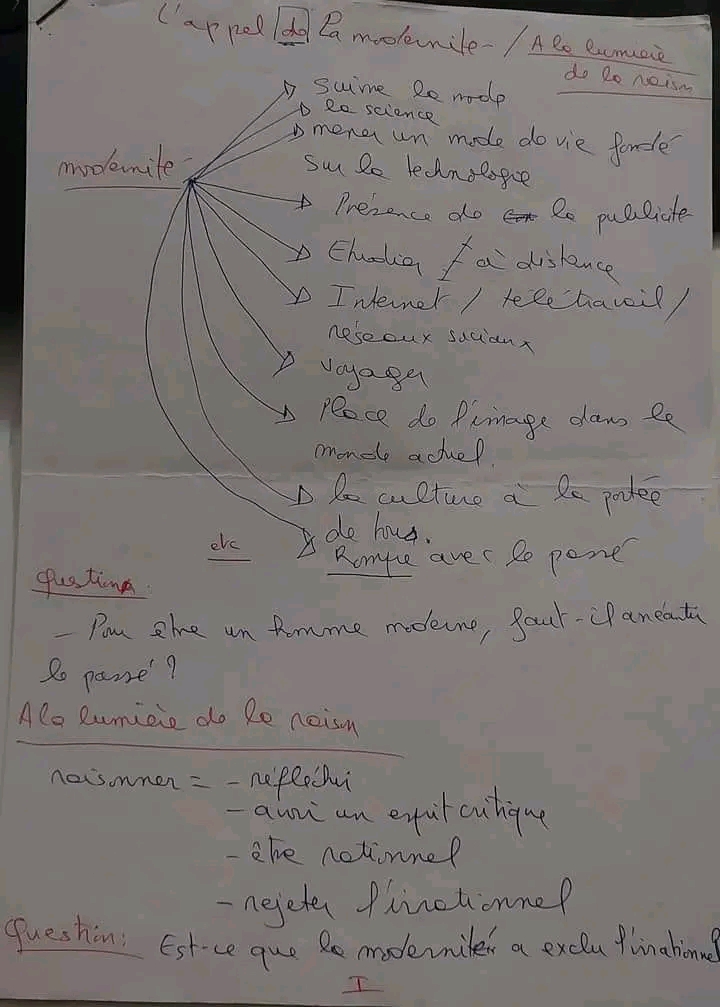 L'appel de la modernité - / A la lumière
de la raison
suivre la mode
la science
mener un mode de vie fondé
modernité
sur la technologie
Présence de la publicité
Etudier / à distance
Internet / télétravail /
réseaux sociaux
voyager
Place de l'image dans le
monde actuel.
la culture à la portée
de tous.
etc
Rompre avec le passé
Question :
- Pour être un homme moderne, faut-il anéantir
le passé ?
A la lumière de la raison
raisonner = - réfléchir
- avoir un esprit critique
- être rationnel
- rejeter l'irrationnel
Question : Est-ce que la modernité a exclu l'irrationnel
I